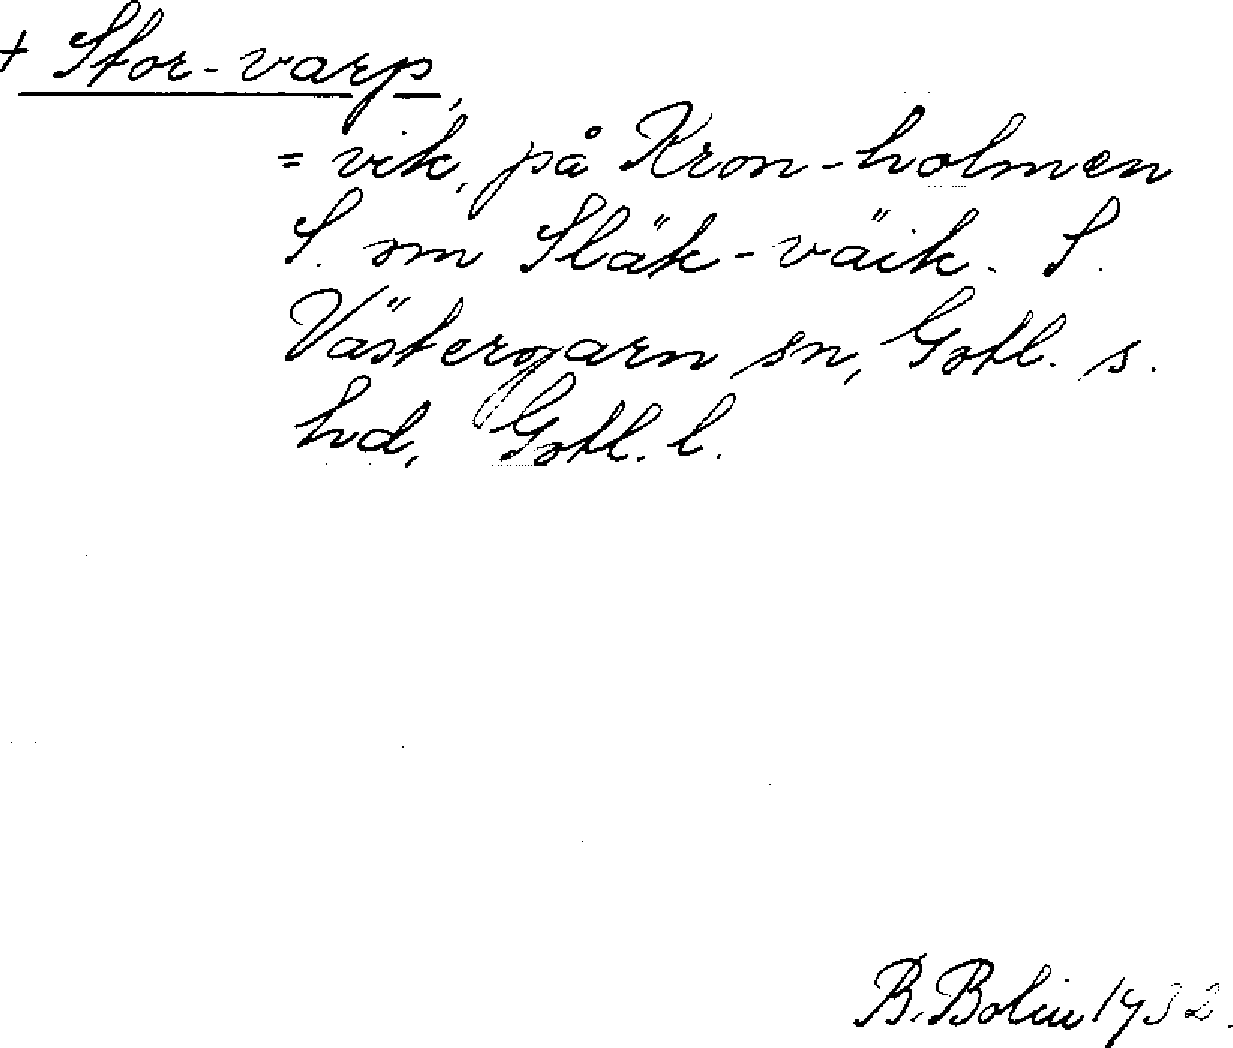 + Stor-varp,
= vik, på Kron-holmen
S. om Släk-väik. S.
Västergarn sn, Gotl. s.
hd, Gotl. l.
B. Bolin 1932.